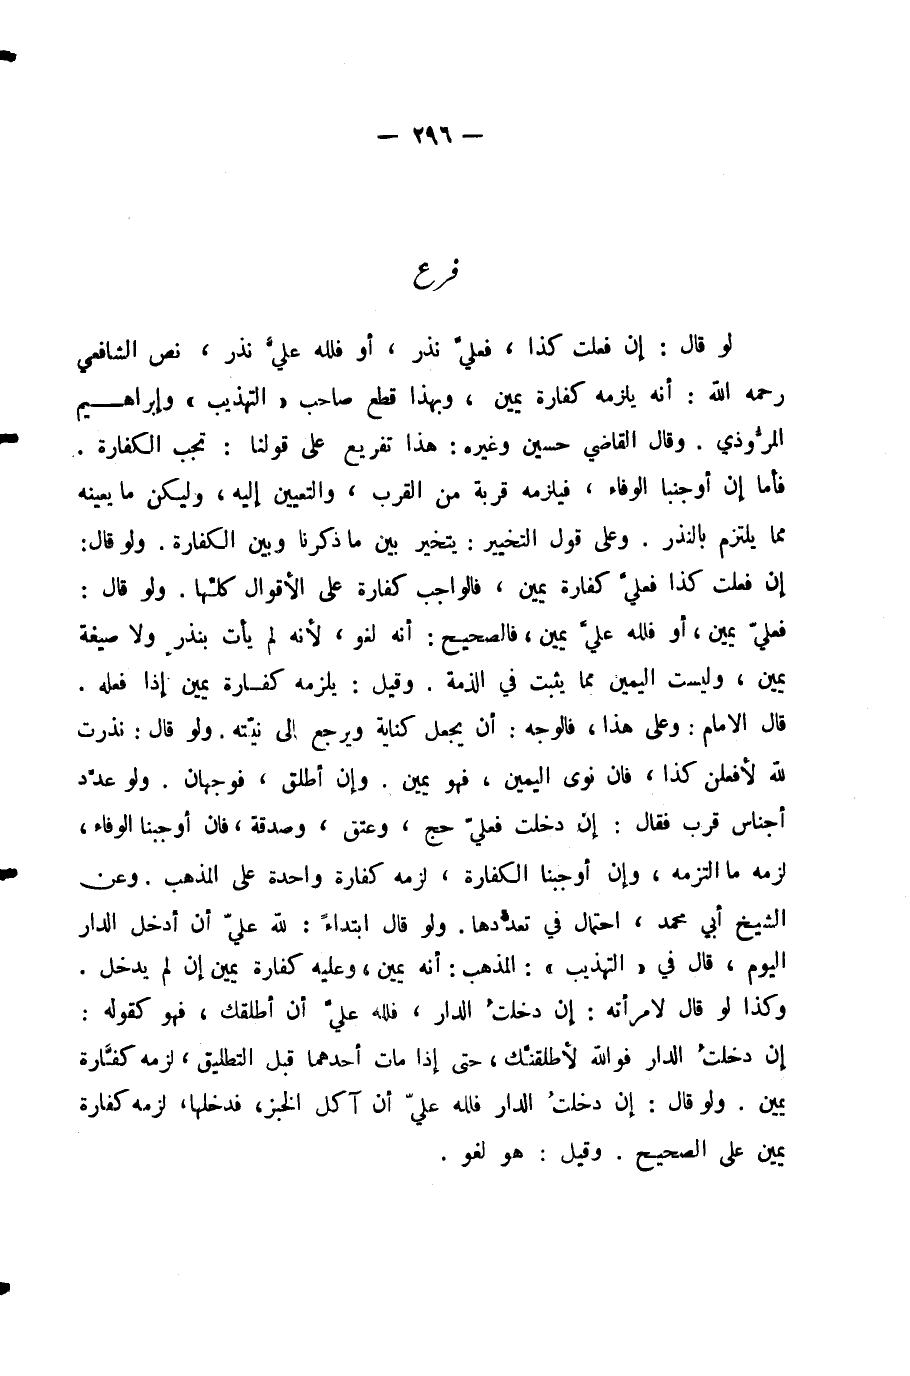 — ٢٩٦ —
فرع
لو قال : إن فعلت كذا ، فعليَّ نذر ، أو فلله عليَّ نذر ، نص الشافعي
رحمه الله : أنه يلزمه كفارة يمين ، وبهذا قطع صاحب « التهذيب » وإبراهـــيم
المرُّوذي . وقال القاضي حسين وغيره : هذا تفريع على قولنا : تجب الكفارة .
فأما إن أوجبنا الوفاء ، فيلزمه قربة من القرب ، والتعيين إليه ، وليكن ما يعينه
مما يلتزم بالنذر . وعلى قول التخيير : يتخير بين ما ذكرنا وبين الكفارة . ولو قال :
إن فعلت كذا فعليَّ كفارة يمين ، فالواجب كفارة على الأقوال كلـّها . ولو قال :
فعليّ يمين ، أو فلله عليَّ يمين ، فالصحيح : أنه لغو ، لأنه لم يأت بنذر ولا صيغة
يمين ، وليست اليمين مما يثبت في الذمة . وقيل : يلزمه كفـارة يمين إذا فعله .
قال الامام : وعلى هذا ، فالوجه : أن يجعل كناية ويرجع إلى نيّته . ولو قال : نذرت
لله لأفعلن كذا ، فان نوى اليمين ، فهو يمين . وإن أطلق ، فوجهان . ولو عدّد
أجناس قرب فقال : إن دخلت فعليّ حج ، وعتق ، وصدقة ، فان أوجبنا الوفاء ،
لزمه ما التزمه ، وإن أوجبنا الكفارة ، لزمه كفارة واحدة على المذهب . وعن
الشيخ أبي محمد ، احتمال في تعدُّدها . ولو قال ابتداءً : لله عليّ أن أدخل الدار
اليوم ، قال في « التهذيب » : المذهب : أنه يمين ، وعليه كفارة يمين إن لم يدخل .
وكذا لو قال لامرأته : إن دخلتُ الدار ، فلله عليَّ أن أطلقك ، فهو كقوله :
إن دخلتُ الدار فوالله لأطلقنـَّك ، حتى إذا مات أحدهما قبل التطليق ، لزمه كفـَّارة
يمين . ولو قال : إن دخلتُ الدار فلله عليّ أن آكل الخبز ، فدخلها ، لزمه كفارة
يمين على الصحيح . وقيل : هو لغو .